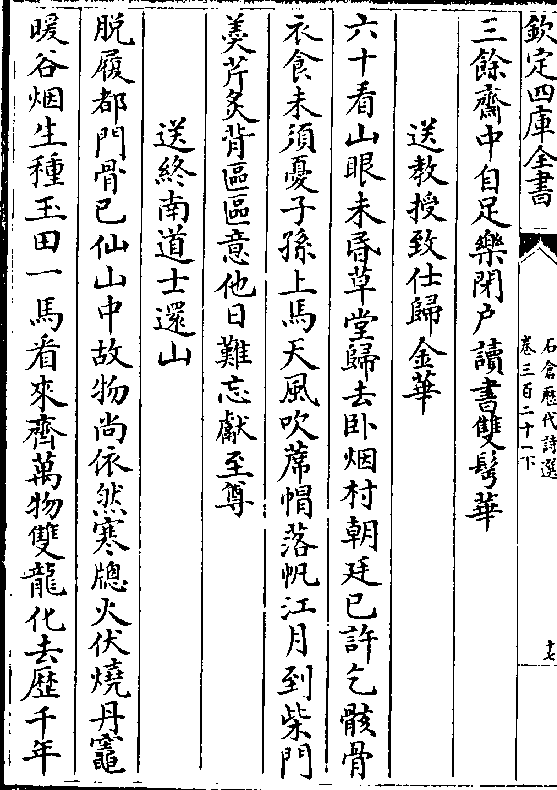 欽定四庫全書
石倉歷代詩選
卷三百二十一下
十七
三餘齋中自足樂閉户讀書雙髩華
送教授致仕歸金華
六十看山眼未昏草堂歸去卧烟村朝廷已許乞骸骨
衣食未須憂子孫上馬天風吹蓆帽落帆江月到柴門
羮芹炙背區區意他日難忘獻至尊
送終南道士還山
脱履都門骨已仙山中故物尚依然寒牕火伏燒丹竈
暖谷烟生種玉田一馬看來齊萬物雙龍化去歴千年